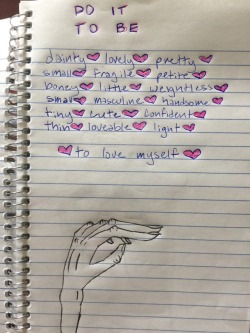 DO IT
TO BE
dainty lovely pretty
small fragile petite
boney little weightless
small masculine handsome
tiny cute confident
thin loveable light
to love myself